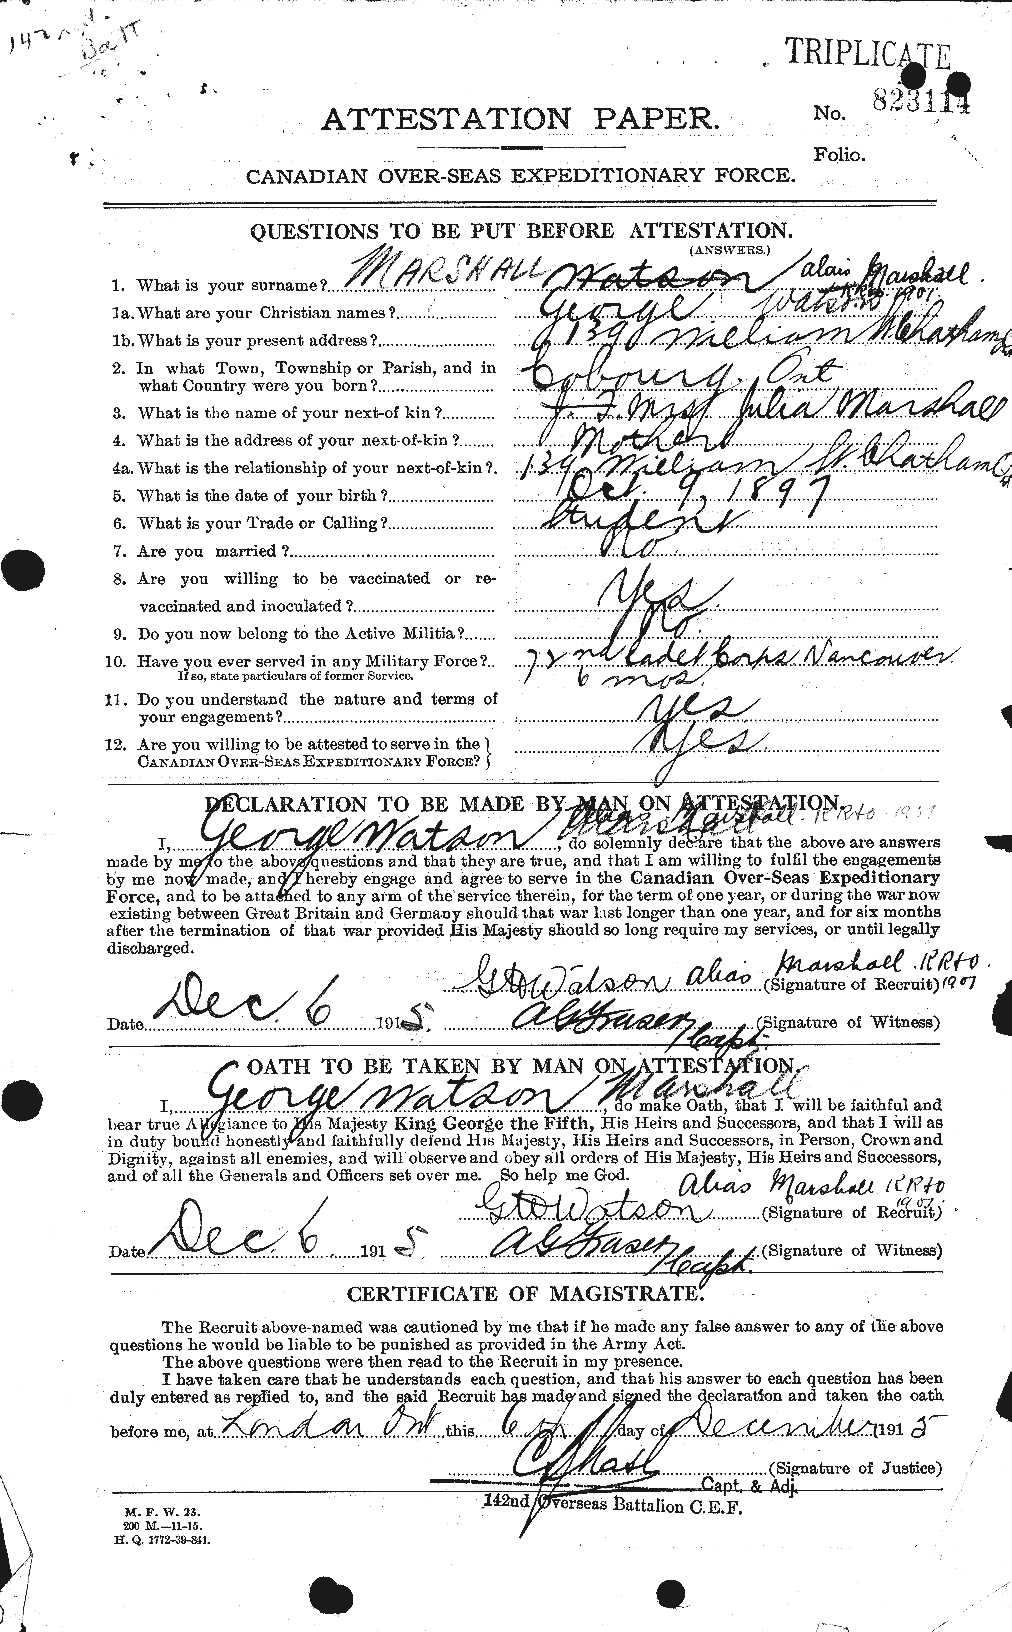 142nd Batt
TRIPLICATE
ATTESTATION PAPER.
No. 823114
Folio.
CANADIAN OVER-SEAS EXPEDITIONARY FORCE.
QUESTIONS TO BE PUT BEFORE ATTESTATION.
(ANSWERS.)
1. What is your surname? MARSHALL Watson alais Marshall. RRto. 1901
1a. What are your Christian names? George Watson
1b. What is your present address? 139 William St. Chatham
2. In what Town, Township or Parish, and in
what Country were you born? Cobourg. Ont
3. What is the name of your next-of kin? Mrs. Julia Marshall
4. What is the address of your next-of-kin? Mother
4a. What is the relationship of your next-of-kin? 139 William St. Chatham
5. What is the date of your birth? Oct. 9, 1897
6. What is your Trade or Calling? Student
7. Are you married? No
8. Are you willing to be vaccinated or re-
vaccinated and inoculated? Yes
9. Do you now belong to the Active Militia? No
10. Have you ever served in any Military Force? 72nd Cadet Corps Vancouver
If so, state particulars of former Service. 6 mos.
11. Do you understand the nature and terms of
your engagement? Yes
12. Are you willing to be attested to serve in the
CANADIAN OVER-SEAS EXPEDITIONARY FORCE? Yes
DECLARATION TO BE MADE BY MAN ON ATTESTATION.
alias Marshall. RRto
I, George Watson Marshall, do solemnly declare that the above are answers
made by me to the above questions and that they are true, and that I am willing to fulfil the engagements
by me now made, and I hereby engage and agree to serve in the Canadian Over-Seas Expeditionary
Force, and to be attached to any arm of the service therein, for the term of one year, or during the war now
existing between Great Britain and Germany should that war last longer than one year, and for six months
after the termination of that war provided His Majesty should so long require my services, or until legally
discharged.
G Watson alias Marshall. RRto. (Signature of Recruit) 1901
Date Dec. 6 1915. A G Fraser Capt. (Signature of Witness)
OATH TO BE TAKEN BY MAN ON ATTESTATION.
I, George Watson Marshall, do make Oath, that I will be faithful and
bear true Allegiance to His Majesty King George the Fifth, His Heirs and Successors, and that I will as
in duty bound honestly and faithfully defend His Majesty, His Heirs and Successors, in Person, Crown and
Dignity, against all enemies, and will observe and obey all orders of His Majesty, His Heirs and Successors,
and of all the Generals and Officers set over me. So help me God.
Alias Marshall RRto 1901.
G Watson (Signature of Recruit)
Date Dec. 6 1915 A G Fraser Capt. (Signature of Witness)
CERTIFICATE OF MAGISTRATE.
The Recruit above-named was cautioned by me that if he made any false answer to any of the above
questions he would be liable to be punished as provided in the Army Act.
The above questions were then read to the Recruit in my presence.
I have taken care that he understands each question, and that his answer to each question has been
duly entered as replied to, and the said Recruit has made and signed the declaration and taken the oath
before me, at London Ont this 6th day of December 1915
(Signature of Justice)
Capt. & Adj.
142nd Overseas Battalion C.E.F.
M. F. W. 23.
200 M.—11-15.
H. Q. 1772-39-841.